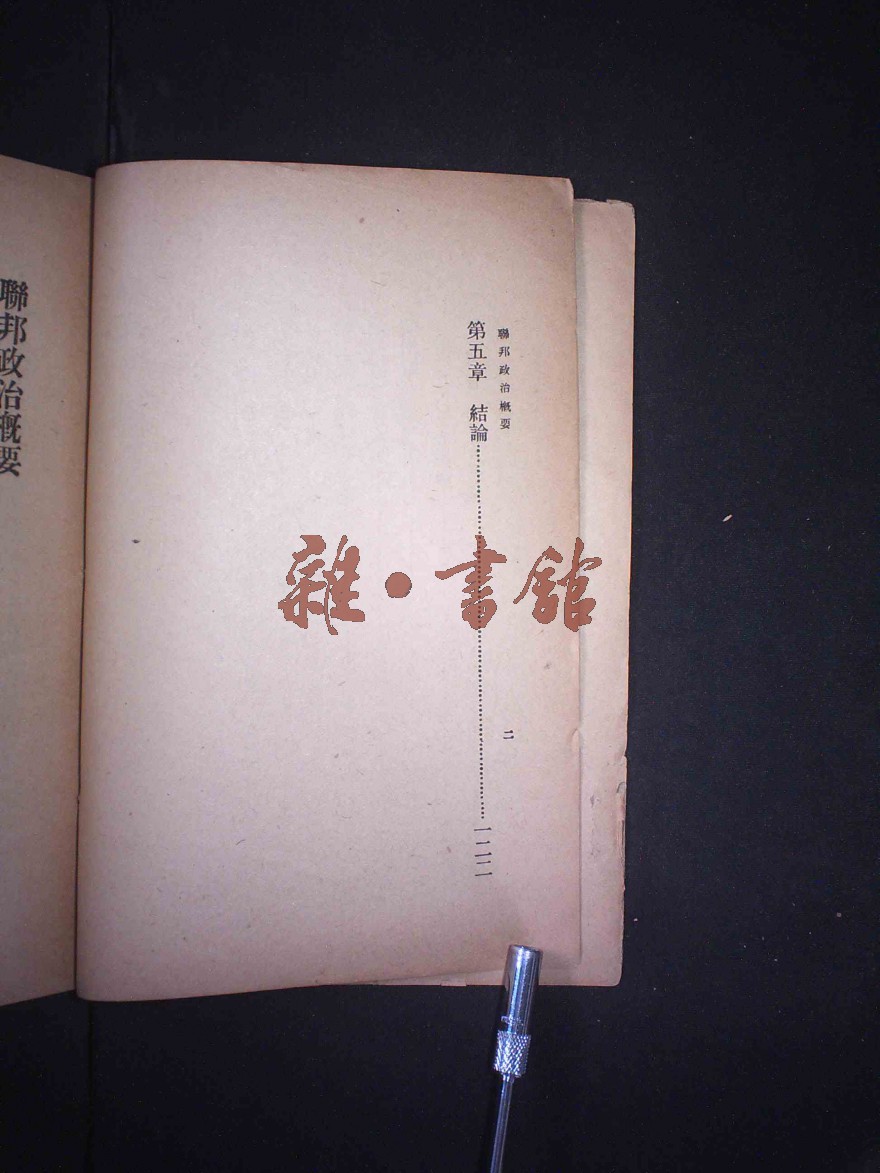 聯邦政治概要
二
第五章　結論……………………………………一二二
聯邦政治概要
雜·書館